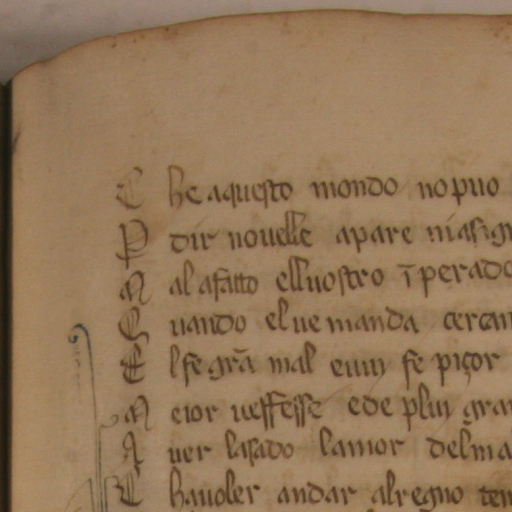 C he aquesto mondo no puo
P dir nouelle apare
M al a fatto ell uostro ī perado
Q uando el ue manda cercan
E l fe grā mal e uuy fe piçor
M eior ueffesse e de pluy gran
A uer lasado lamor del ma
C hauoler andar al regno ten